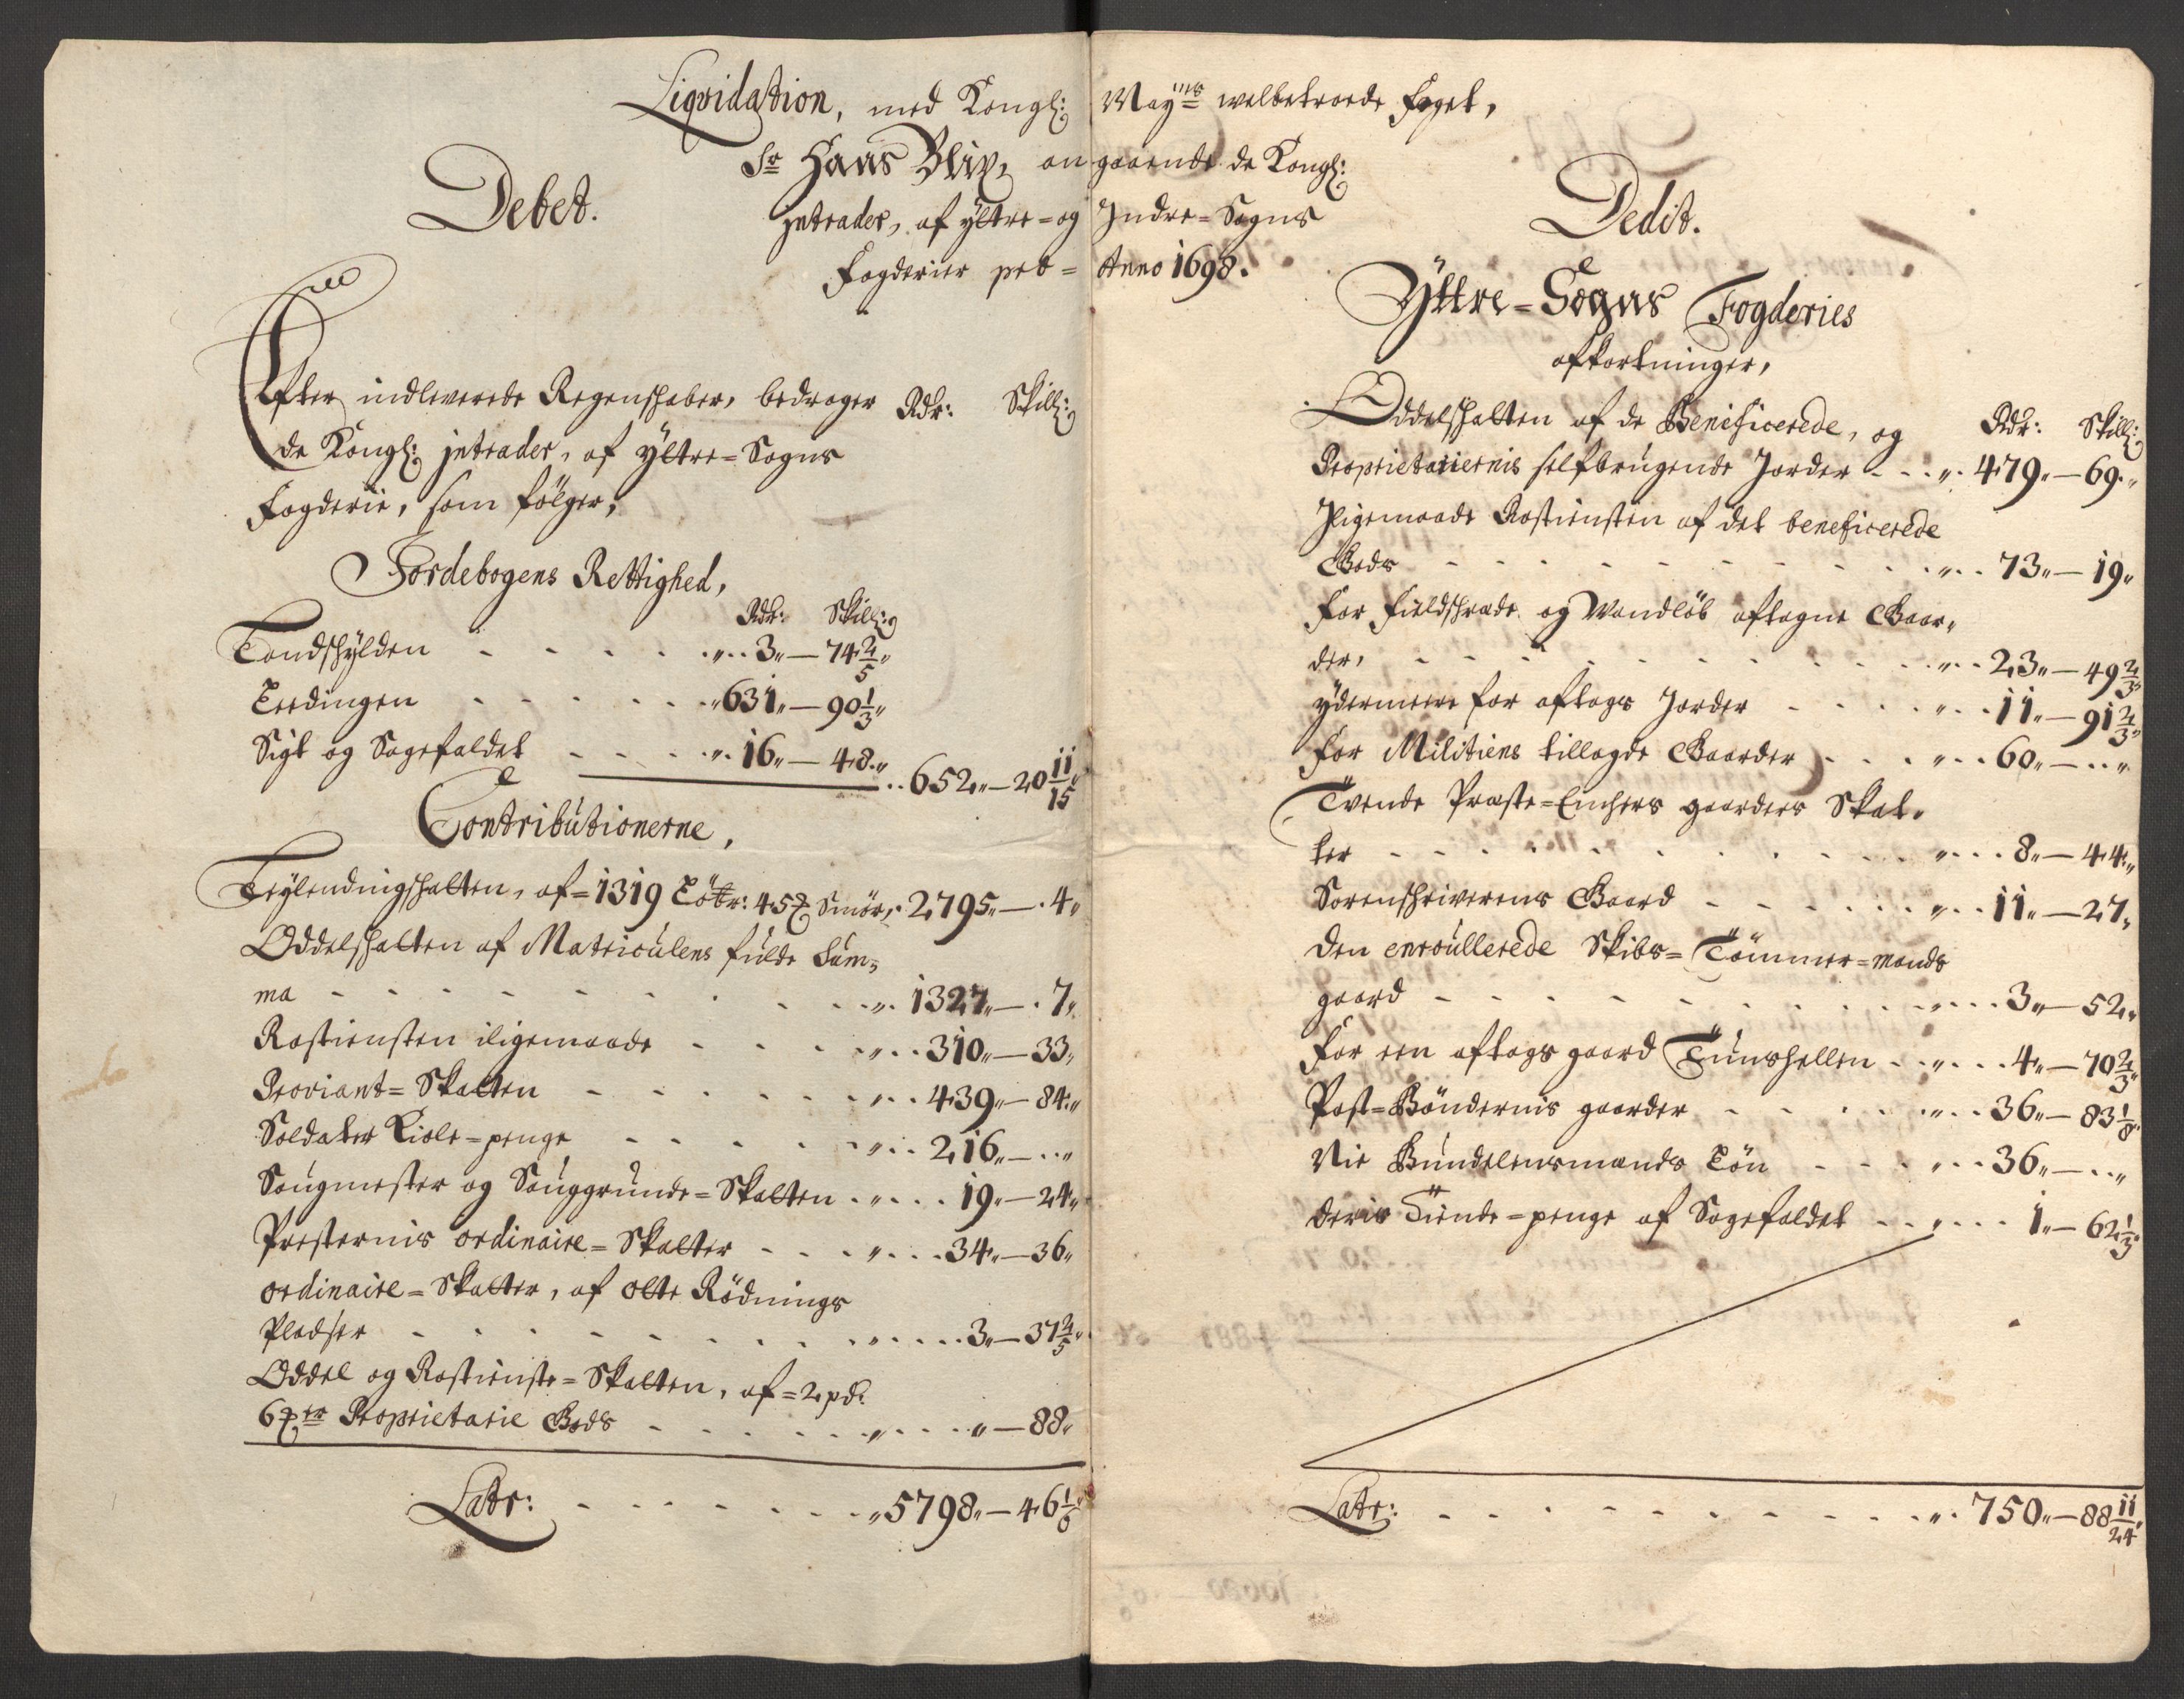 Liqvidation, med Kongl: May:ts welbetroede foget,
Sr Hans Blix, angaaende de Kongl:
jntrader, af Yttre- og Indre-Sogns
fogderier pro Anno 1698.
Debet.
Efter indleverede Regenschaber, bedrager
de Kongl: jntrader, af Yttre-Sogns
fogderie, som følger,
Rdr: Skill:
Jordebogens Rettighed,
Rdr: Skill:
Landschylden - - - - 3,, — 74 2/5,,
Leedingen - - - - 631,, — 90 1/3,,
Sigt og Sagefaldet - - - 16,, — 48,,
652,, — 20 11/15
Contributionerne,
Leylendingschatten, af = 1319 Lötr: 45 ℔ Smör, 2795,, — 4,,
Oddelschatten af Matriculens fulde Sum-
ma - - - - 1327,, — 7,,
Rostiensten iligemaade - - - 310,, — 33,,
Proviant-Skatten - - - - 439,, — 84,,
Soldater Kiole-penge - - - - 216,, — ,,
Saugmester og Sauggrunds-Skatten - - 19,, — 24,,
Presternis ordinaire-Skatter - - - 34,, — 36,,
ordinaire-Skatter, af otte Rödnings
Pladser - - - - 3,, — 37 2/5,,
Oddel og Rostienste-Skatten, af = 2 pd:
6 ℔r Proprietarie Gods - - - - ,, — 88,,
Latr: - - - - 5798,, — 46 1/6
Dedit.
Yttre-Sogns Fogderies
afkortninger,
Rdr: Skill:
Oddelschatten af de Benificerede, og
Proprietariernis selfbrugende Jorder - - 479,, — 69,,
Iligemaade Rostiensten af det beneficerede
Gods - - - - 73,, — 19,,
for fieldschrede og Wandlöb aftagne Gaar-
der, - - - - 23,, — 49 2/3,,
ydermeere for aftags Jorder - - - 11,, — 91 2/3,,
for Militiens tillagde Gaarder - - - 60,, — ,,
Tvende Præste-Enchers gaarders Skat-
ter - - - - 8,, — 44,,
Sorenschriverens Gaard - - - - 11,, — 27,,
den enroullerede Skibs-Tömmer-mands
gaard - - - - 3,, — 52,,
for een aftags gaard Tunshellen - - 4,, — 70 2/3,,
Post-Böndernis gaarder - - - 36,, — 83 1/8,,
Nie Bundelensmands Lön - - - 36,, — ,,
deris Tiende-penge af Sagefaldet - - 1,, — 62 1/3,,
Latr: - - - - 750,, — 88 11/24,,